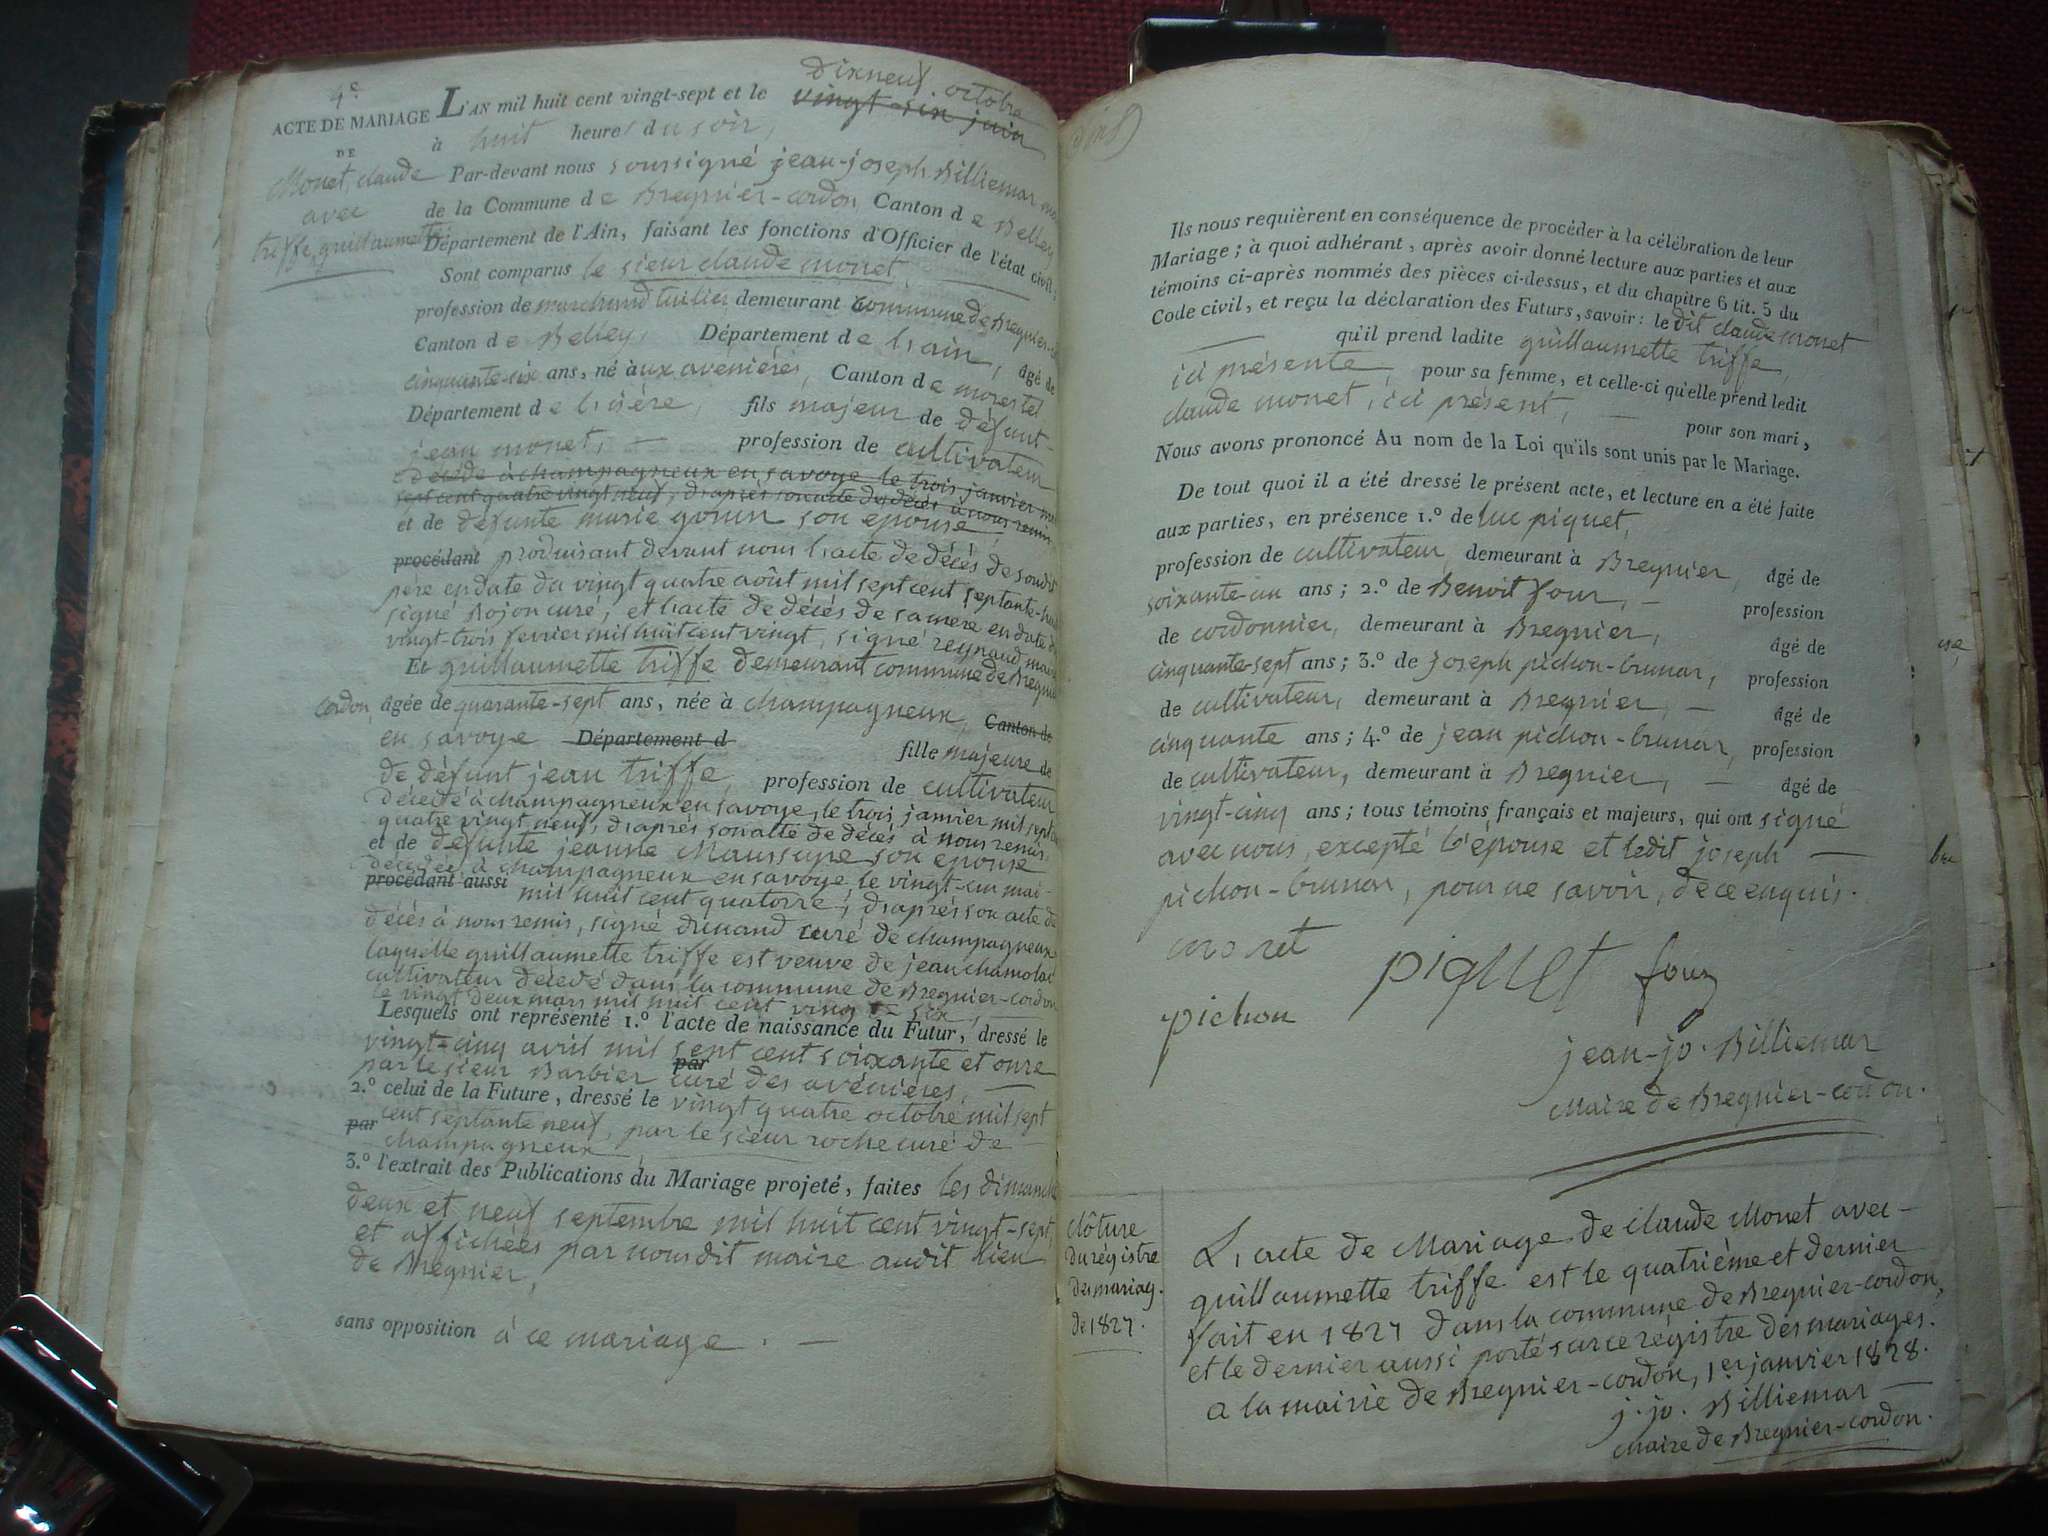 4e
ACTE DE MARIAGE
DE
Monet, claude
avec
triffe, guillaumette
L'AN mil huit cent vingt-sept et le dixneuf octobre
vingt-six juin
à huit heures du soir,
Par-devant nous soussigné jean-joseph Billiemar
de la Commune de Bregnier-cordon Canton de Belley
Département de l'Ain, faisant les fonctions d'Officier de l'état civil,
Sont comparus le sieur claude monet,
profession de marchand tuilier demeurant commune de Bregnier-
Canton de Belley, Département de l'ain, âgé de
cinquante-six ans, né aux aveniéres, Canton de morestel
Département de l'isére, fils majeur de défunt
jean monet, profession de cultivateur
décédé à champagneux en savoye le trois janvier
sept cent quatre vingt neuf, d'après son acte de décés à nous remis
et de défunte marie son epouse
procédant produisant devant nous l'acte de décés de son dit
père en date du vingt quatre août mil sept cent septante-
signé curé, et l'acte de décés de sa mere en date du
vingt-trois fevrier mil huit cent vingt, signé reynaud
Et guillaumette triffe demeurant commune de Bregnier
cordon, âgée de quarante-sept ans, née à champagneux, Canton de
en savoye Département d fille majeure de
de défunt jean triffe, profession de cultivateur
décédé à champagneux en savoye, le trois janvier mil sept
quatre vingt neuf, d'aprés son acte de décés à nous remis,
et de défunte jeanne son epouse
décédée à champagneux en savoye, le vingt-un mai
procédant aussi mil huit cent quatorze, d'aprés son acte de
décés à nous remis, signé curé de champagneux
laquelle guillaumette triffe est veuve de jean
cultivateur décédé dans la commune de Bregnier-cordon
le vingt deux mars mil huit cent vingt-six,
Lesquels ont représenté 1.º l'acte de naissance du Futur, dressé le
vingt-cinq avril mil sept cent soixante et onze
par le sieur Barbier par curé des avéniéres,
2.º celui de la Future, dressé le vingt quatre octobre mil sept
par cent septante neuf, par le sieur roche curé de
champagneux
3.º l'extrait des Publications du Mariage projeté, faites les dimanches
deux et neuf septembre mil huit cent vingt-sept,
et affichées par nous dit maire audit lieu
de Bregnier,
sans opposition à ce mariage.
Ils nous requièrent en conséquence de procéder à la célébration de leur
Mariage; à quoi adhérant, après avoir donné lecture aux parties et aux
témoins ci-après nommés des pièces ci-dessus, et du chapitre 6 tit. 5 du
Code civil, et reçu la déclaration des Futurs, savoir: le dit claude monet
qu'il prend ladite guillaumette triffe,
ici présente, pour sa femme, et celle-ci qu'elle prend ledit
claude monet, ici présent, pour son mari,
Nous avons prononcé Au nom de la Loi qu'ils sont unis par le Mariage.
De tout quoi il a été dressé le présent acte, et lecture en a été faite
aux parties, en présence 1.º de luc piquet,
profession de cultivateur demeurant à Bregnier, âgé de
soixante-un ans; 2.º de Benoit four, profession
de cordonnier, demeurant à Bregnier, âgé de
cinquante-sept ans; 3.º de joseph pichon-brunar, profession
de cultivateur, demeurant à Bregnier, âgé de
cinquante ans; 4.º de jean pichon-brunar, profession
de cultivateur, demeurant à Bregnier, âgé de
vingt-cinq ans; tous témoins français et majeurs, qui ont signé
avec nous, excepté l'épouse et ledit joseph
pichon-brunar, pour ne savoir, de ce enquis.
piquet four
pichon
jean-jo. Billiemar
Maire de Bregnier-cordon.
Clôture
du régistre
des mariag.
de 1827.
L'acte de Mariage de claude Monet avec
guillaumette triffe est le quatriéme et dernier
fait en 1827 dans la commune de Bregnier-cordon,
et le dernier aussi porté sur ce régistre des mariages.
a la mairie de Bregnier-cordon, 1.er janvier 1828.
j. jo. Billiemar
Maire de Bregnier-cordon.